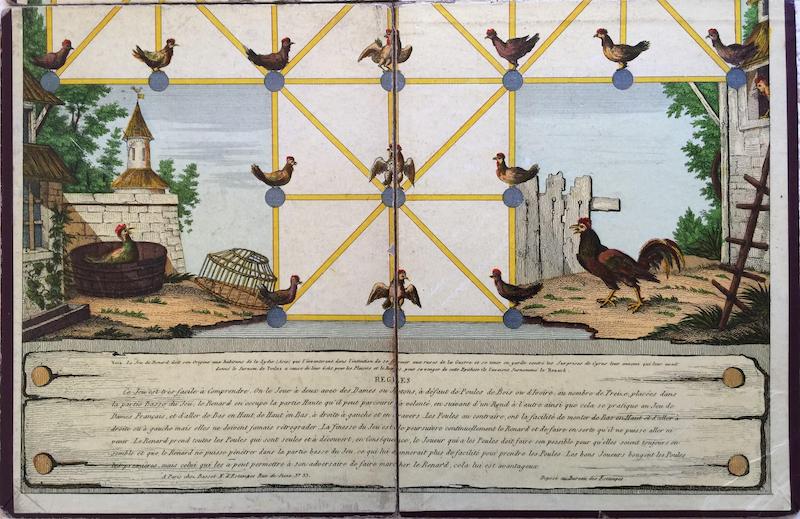 Nota. Le Jeu du Renard doit son Origine aux Habitans de la Lydie (Asie) qui l'inventerent dans l'intention de se former aux ruses de la Guerre et se tenir en garde contre les Surprises de Cyrus leur ennemi qui leur avait
donné le Surnom de Poules a cause de leur
pour se vanger de cette Epithete ils l'avaient Surnommé le Renard.
REGLES
Ce Jeu est très facile à Comprendre. On le Joue à deux avec des Dames ou Jettons, à défaut de Poules de Bois ou d'Ivoire, au nombre de Treize, placées dans
la partie basse du Jeu; le Renard en occupe la partie Haute qu'il peut parcourir à volonté, en suivant d'un Rond à l'autre ainsi que cela se pratique au Jeu de
Dames Français, et d'aller de Bas en Haut, de Haut en Bas, à droite à gauche et en travers. Les Poules au contraire, ont la facilité de monter de Bas en Haut et d'aller à
droite ou à gauche mais elles ne doivent jamais rétrograder. La finesse du Jeu est de poursuivre continuellement le Renard et de faire en sorte qu'il ne puisse aller ni
venir. Le Renard prend toutes les Poules qui sont seules et à découvert, en conséquence, le Joueur qui a les Poules doit faire son possible pour qu'elles soient toujours en-
semble et que le Renard ne puisse pénétrer dans la partie basse du Jeu, ce qui lui donnerait plus de facilité pour prendre les Poules. Les bons Joueurs bougent les Poules
les premieres, mais celui qui les a peut permettre à son adversaire de faire marcher le Renard, cela lui est avantageux.
A Paris chez Basset M.d d'Estampes Rue de Seine N.º 33.
Déposé au Bureau des Estampes